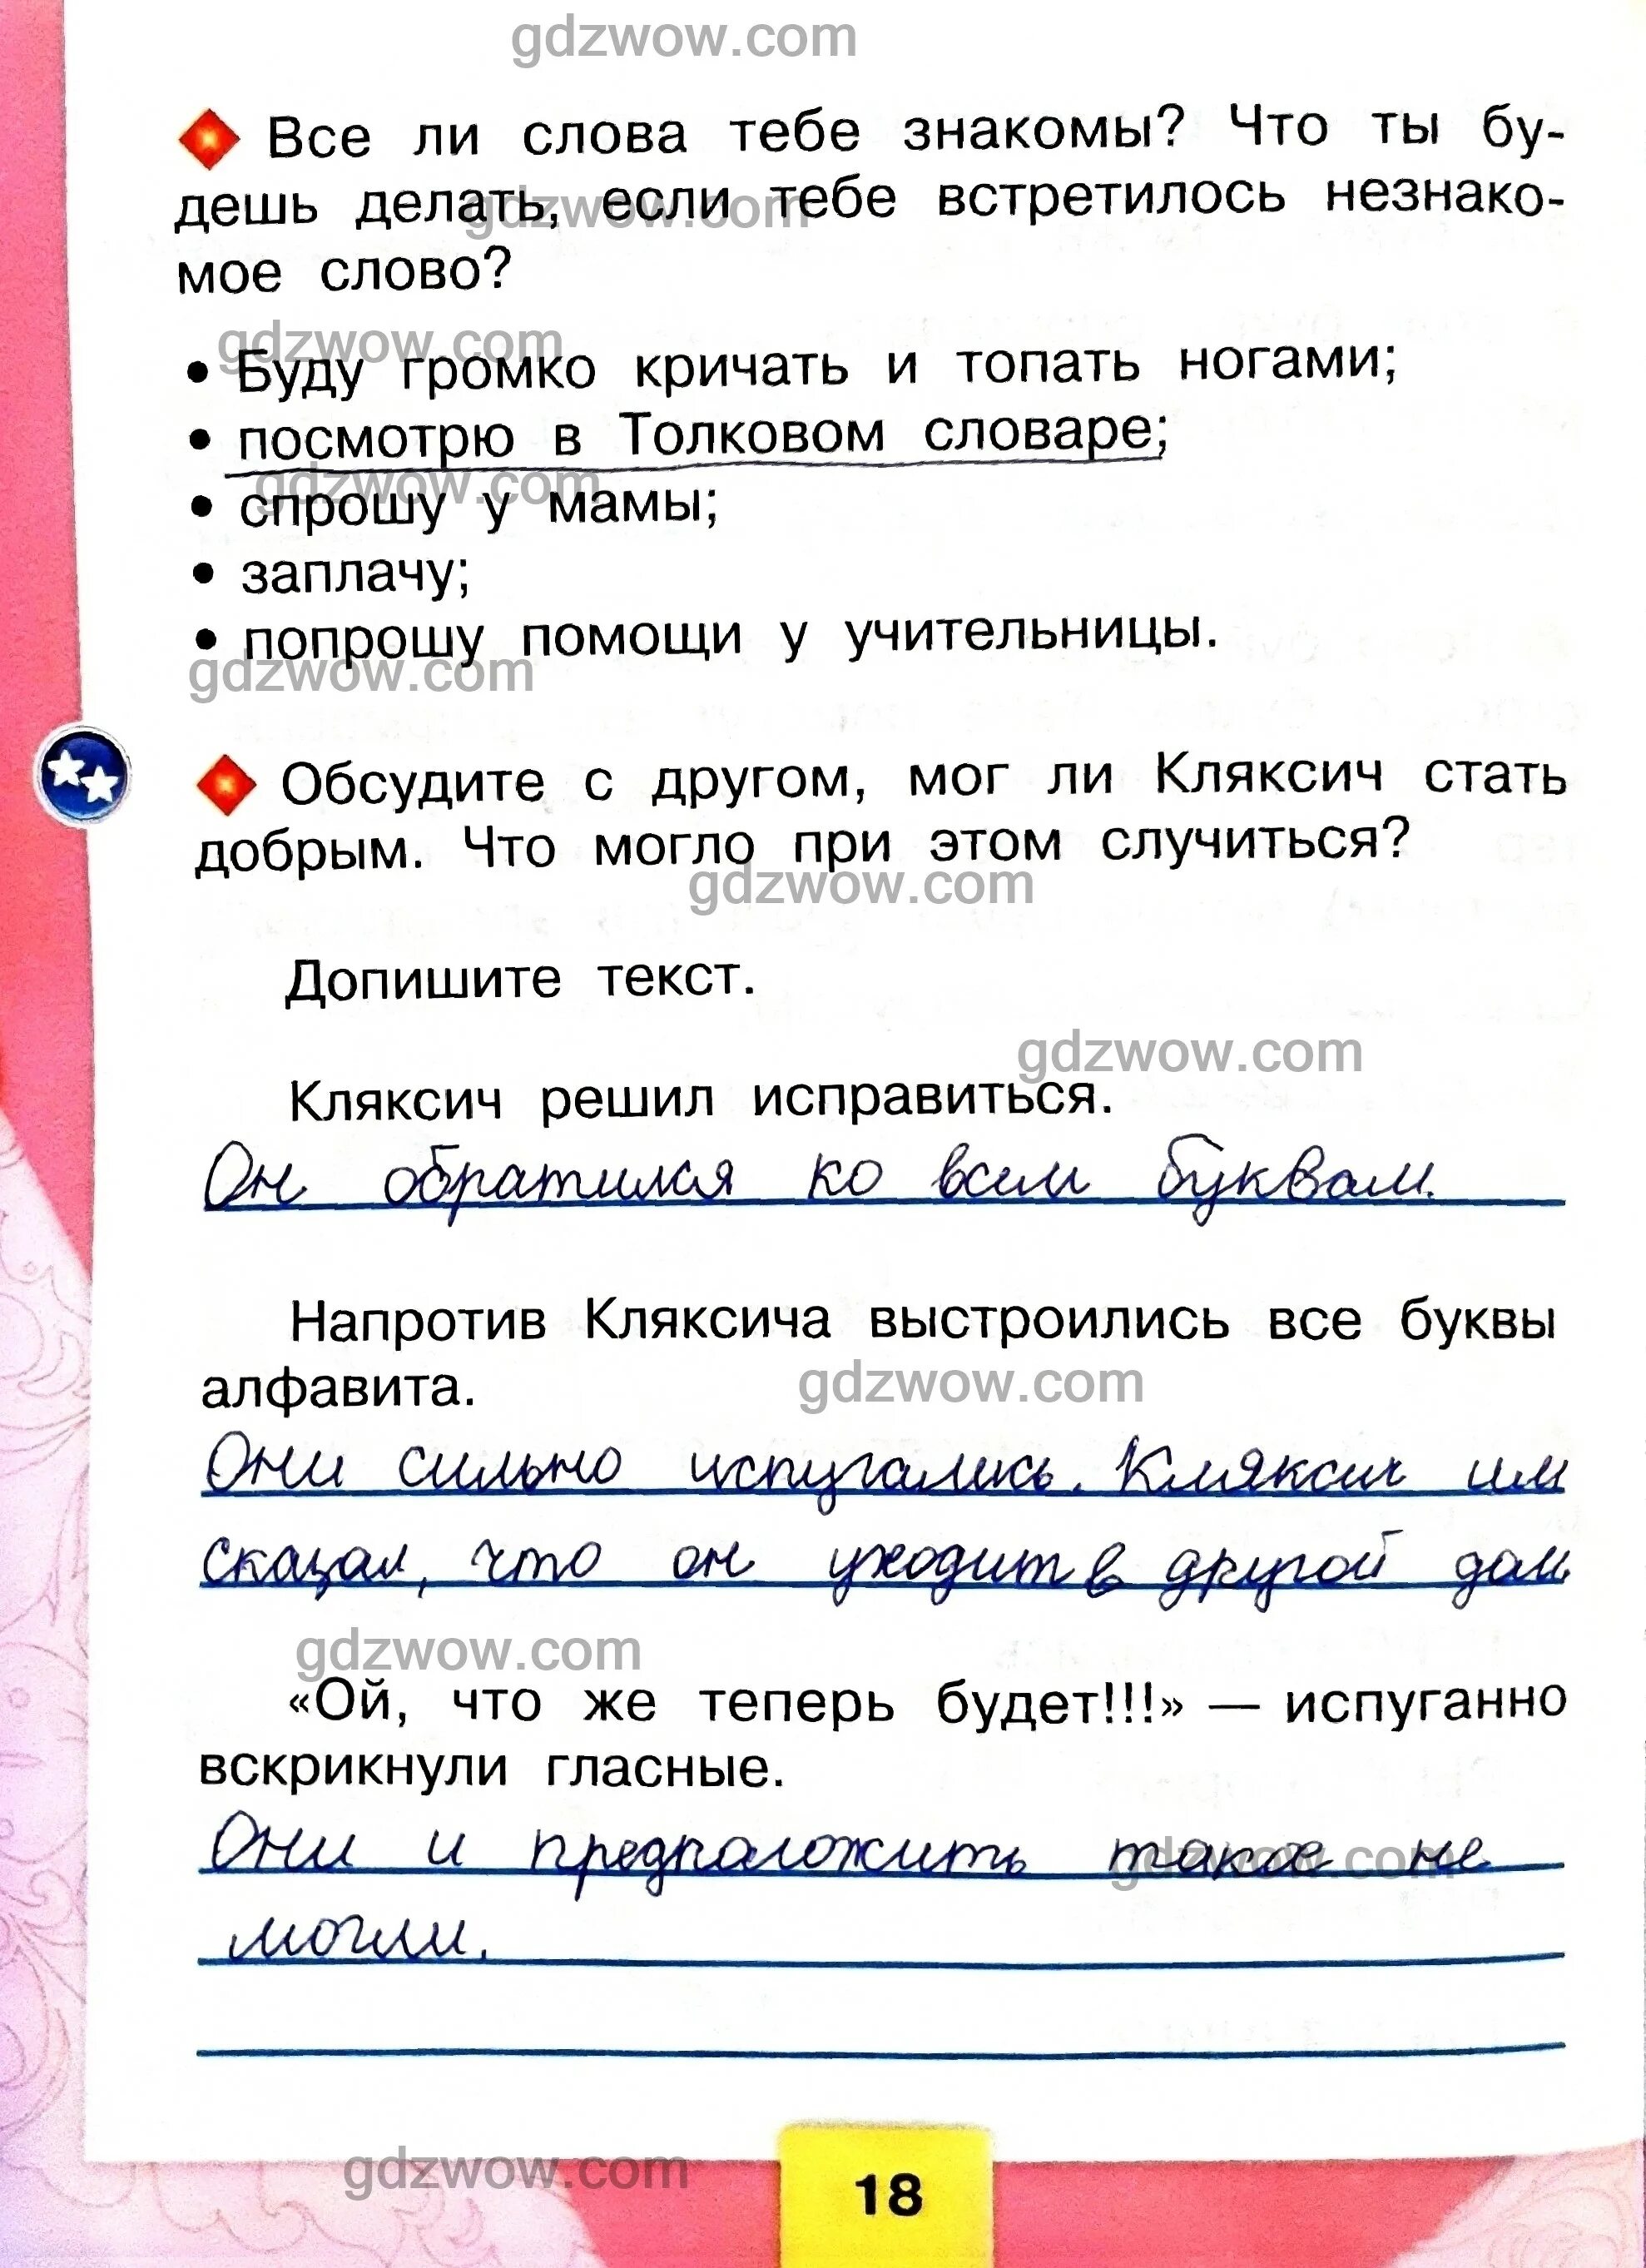 gdzwow.com
Все ли слова тебе знакомы? Что ты бу-
дешь делать, если тебе встретилось незнако-
gdzwow.com
мое слово?
gdzwow.com
• Буду громко кричать и топать ногами;
• посмотрю в Толковом словаре;
gdzwow.com
• спрошу у мамы;
• заплачу;
• попрошу помощи у учительницы.
gdzwow.com
Обсудите с другом, мог ли Кляксич стать
добрым. Что могло при этом случиться?
gdzwow.com
Допишите текст.
gdzwow.com
Кляксич решил исправиться.
Он обратился ко всем буквам.
Напротив Кляксича выстроились все буквы
алфавита.
gdzwow.com
Они сильно испугались. Кляксич им
сказал, что он уходит в другой дом.
gdzwow.com
«Ой, что же теперь будет!!!» — испуганно
вскрикнули гласные.
Они и предположить такое не
gdzwow.com
могли.
gdzwow.com
18